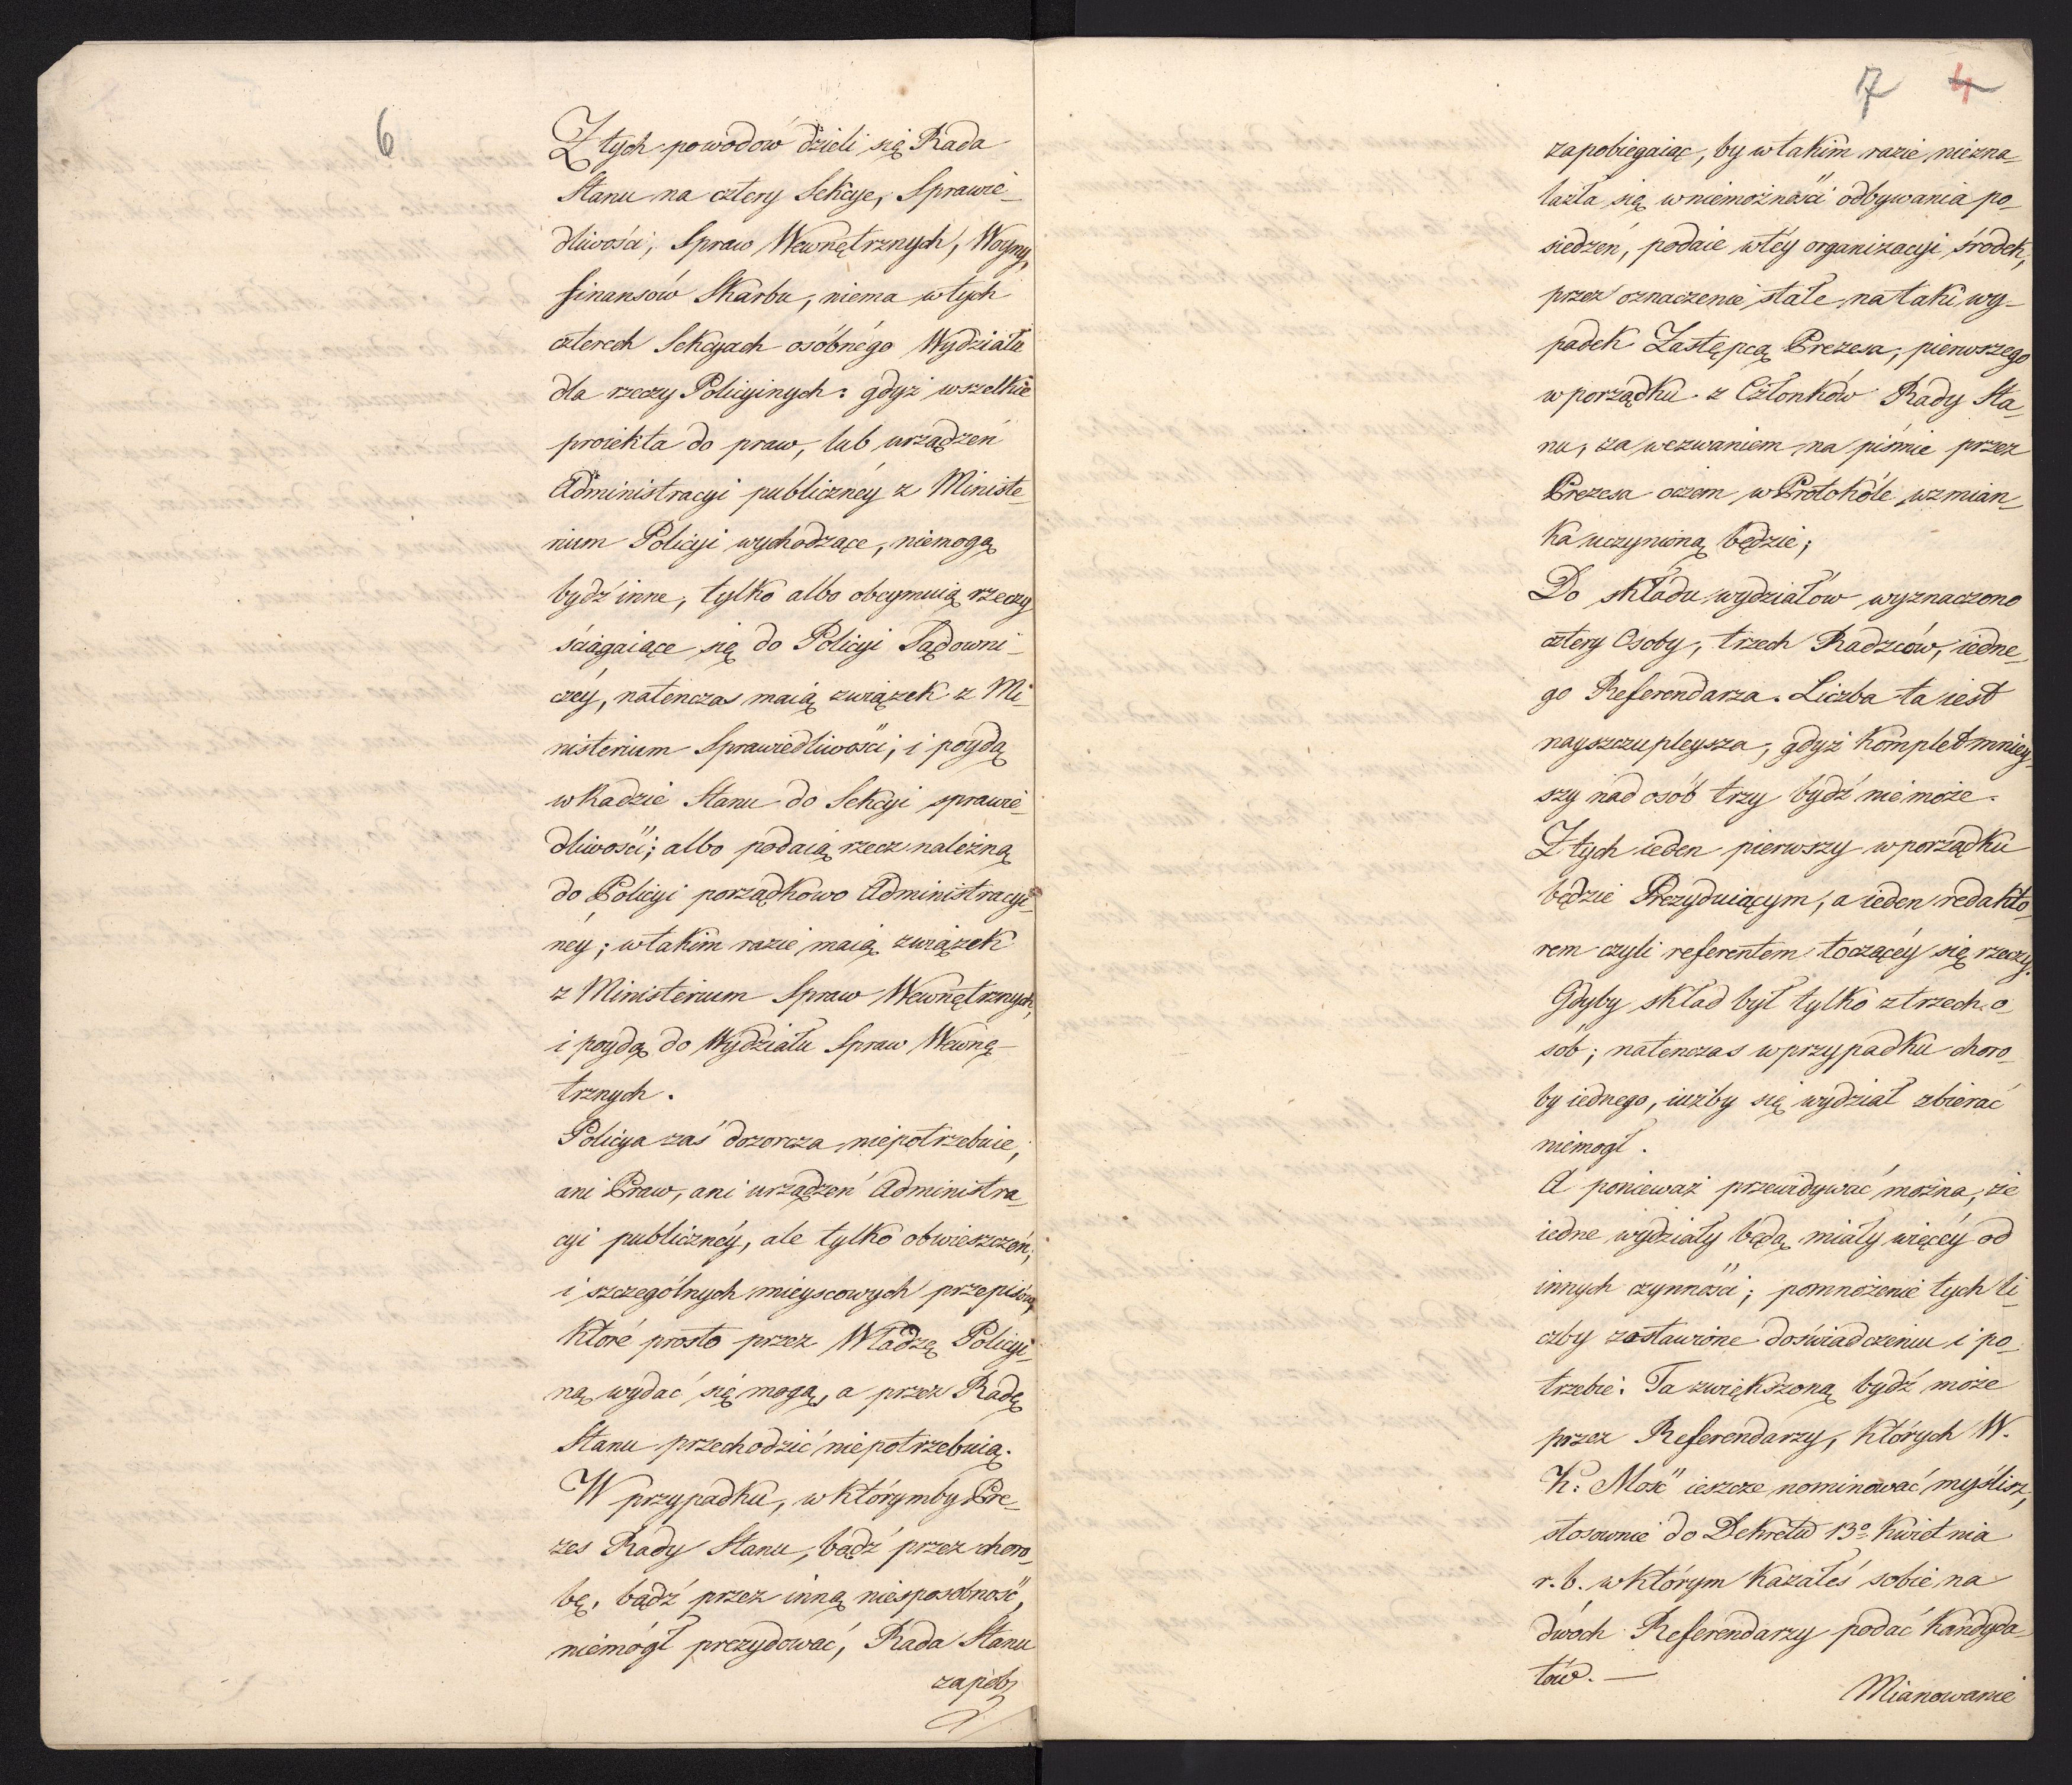 6
Z tych powodów dzieli się Rada
Stanu na cztery Sekcye, Sprawie-
dliwości, Spraw Wewnętrznych, Woyny,
finansów Skarbu, niema w tych
czterech Sekcyach osóbnégo Wydziału
dla rzeczy Policyinych: gdyż wszelkie
proiekta do praw, lub urządzeń
Administracyi publicznéy z Ministe-
rium Policyi wychodzące, niemogą
bydź inne, tylko albo obeymuią rzeczy
ściągaiące się do Policyi Sądowni-
czéy, natenczas maią związek z Mi-
nisterium Sprawiedliwości, i poydą
w Radzie Stanu do Sekcyi sprawie-
dliwości; albo podaią rzecz należną
do Policyi porządkowo Administracyi-
néy; w takim razie maią związek
z Ministerium Spraw Wewnętrznych,
i poydą do Wydziału Spraw Wewnę-
trznych.
Policya zaś dozorcza niepotrzebuie,
ani Praw, ani urządzeń Administra-
cyi publicznéy, ale tylko obwieszczeń,
i szczególnych mieyscowych przepisów,
które prosto przez Władzę Policyi-
ną wydać się mogą, a przez Radę
Stanu przechodzić niepotrzebuią.
W przypadku, w którymby Pre-
zes Rady Stanu, bądź przez choro-
bę, bądź przez inną niesposobność,
niemógł prezydować, Rada Stanu
zapob
7 4
zapobiegaiąc, by w takim razie niezna-
lazła się w niemożności odbywania po-
siedzeń, podaie w téy organizacyi środek,
przez oznaczenie stałe na taki wy-
padek Zastępcą Prezesa, pierwszego
w porządku z Członków Rady Sta-
nu, za wezwaniem na piśmie przez
Prezesa oczem w Protokóle wzmian-
ka uczynioną będzie;
Do składu wydziałów wyznaczono
cztery Osoby, trzech Radzców, iedne-
go Referendarza. Liczba ta iest
nayszczupleysza, gdyż komplet mniey-
szy nad osób trzy bydź niemoże.
Z tych ieden pierwszy w porządku
będzie Prezyduiącym, a ieden redakto-
rem czyli referentem toczącéy się rzeczy.
Gdyby skład był tylko z trzech o-
sób; natenczas w przypadku choro-
by iednego, iużby się wydział zbierać
niemogł.
A ponieważ przewidywać można, że
iedne wydziały będą miały więcéy od
innych czynności; pomnożenie tych li-
czby zostawione doświadczeniu i po-
trzebie. Ta zwiększoną bydź może
przez Referendarzy, których W.
K: Mość ieszcze nominować myślisz,
stosownie do Dekretu 13º Kwietnia
r. b. w którym kazałeś sobie na
dwóch Referendarzy podać kandyda-
tów. —
Mianowanie